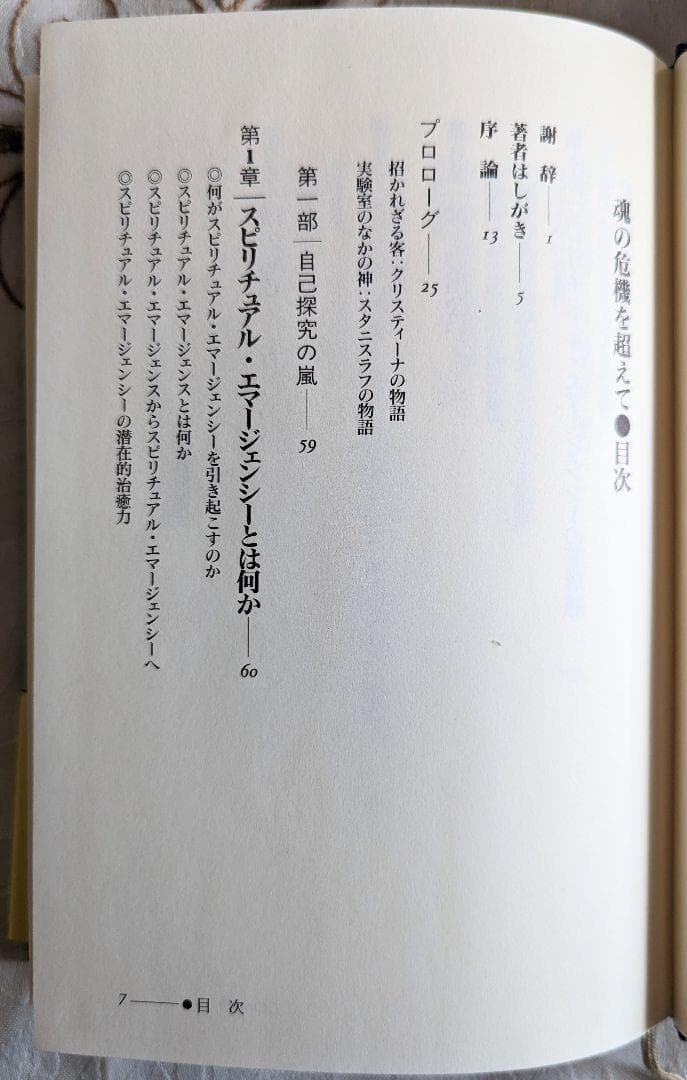 魂の危機を超えて●目次
謝辞——1
著者はしがき——5
序論——13
プロローグ——25
招かれざる客:クリスティーナの物語
実験室のなかの神:スタニスラフの物語
第一部｜自己探究の嵐——59
第1章｜スピリチュアル・エマージェンシーとは何か——60
◎何がスピリチュアル・エマージェンシーを引き起こすのか
◎スピリチュアル・エマージェンスとは何か
◎スピリチュアル・エマージェンスからスピリチュアル・エマージェンシーへ
◎スピリチュアル・エマージェンシーの潜在的治癒力
7——●目次